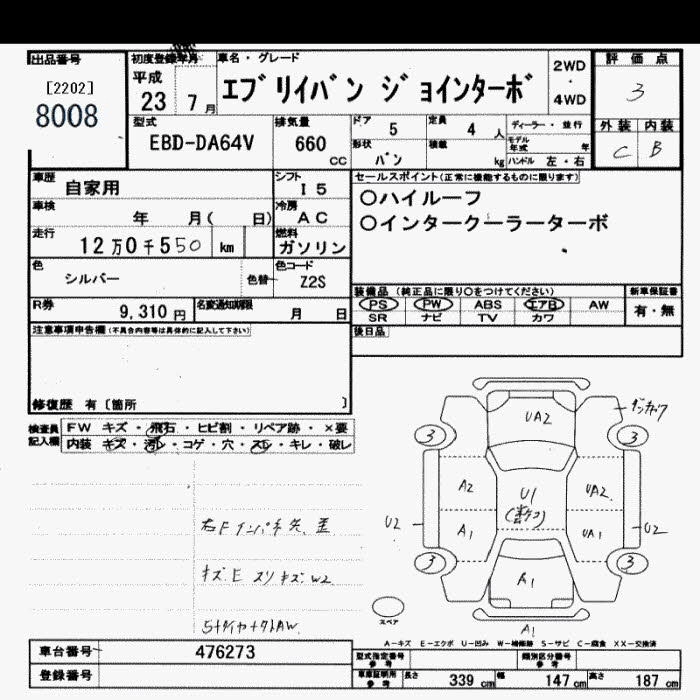 出品番号 初度登録年月 車名・グレード 2WD・4WD 評価点
[2202]
8008
平成 23 7月 エブリイバン ジョインターボ 3
型式 EBD-DA64V 排気量 660 CC
ドア 5 定員 4 人 ディーラー・並行
形状 バン 積載 kg モデル年式 年 ハンドル 左・右
外装 内装
C B
車歴 自家用 シフト I5
車検 年 月( 日) 冷房 AC
走行 12万0千550 km 燃料 ガソリン
色 シルバー 色替 色コード Z2S
R券 9,310円 名変通知期限 月 日
セールスポイント(正常に機能するものに限ります)
○ハイルーフ
○インタークーラーターボ
装備品 (純正品に限り○をつけてください) 新車保証書
PS PW ABS エアB AW 有・無
SR ナビ TV カワ
後日品
注意事項申告欄(不具合内容等は具体的に記入して下さい)
修復歴 有〔箇所 〕
検査員記入欄 FW キズ・飛石・ヒビ割・リペア跡・×要
内装 キズ・汚レ・コゲ・穴・スレ・キレ・破レ
UA2
3 3
A2 U1 UA2
U2 A1 UA1 U2
3 3
A1
スペア
A1
A-キズ E-エクボ U-凹み W-補修跡 S-サビ C-腐食 XX-交換済
車台番号 476273
登録番号
型式指定番号 参考 類別区分番号 参考
車庫証明用 参考 長さ 339 cm 幅 147 cm 高さ 187 cm